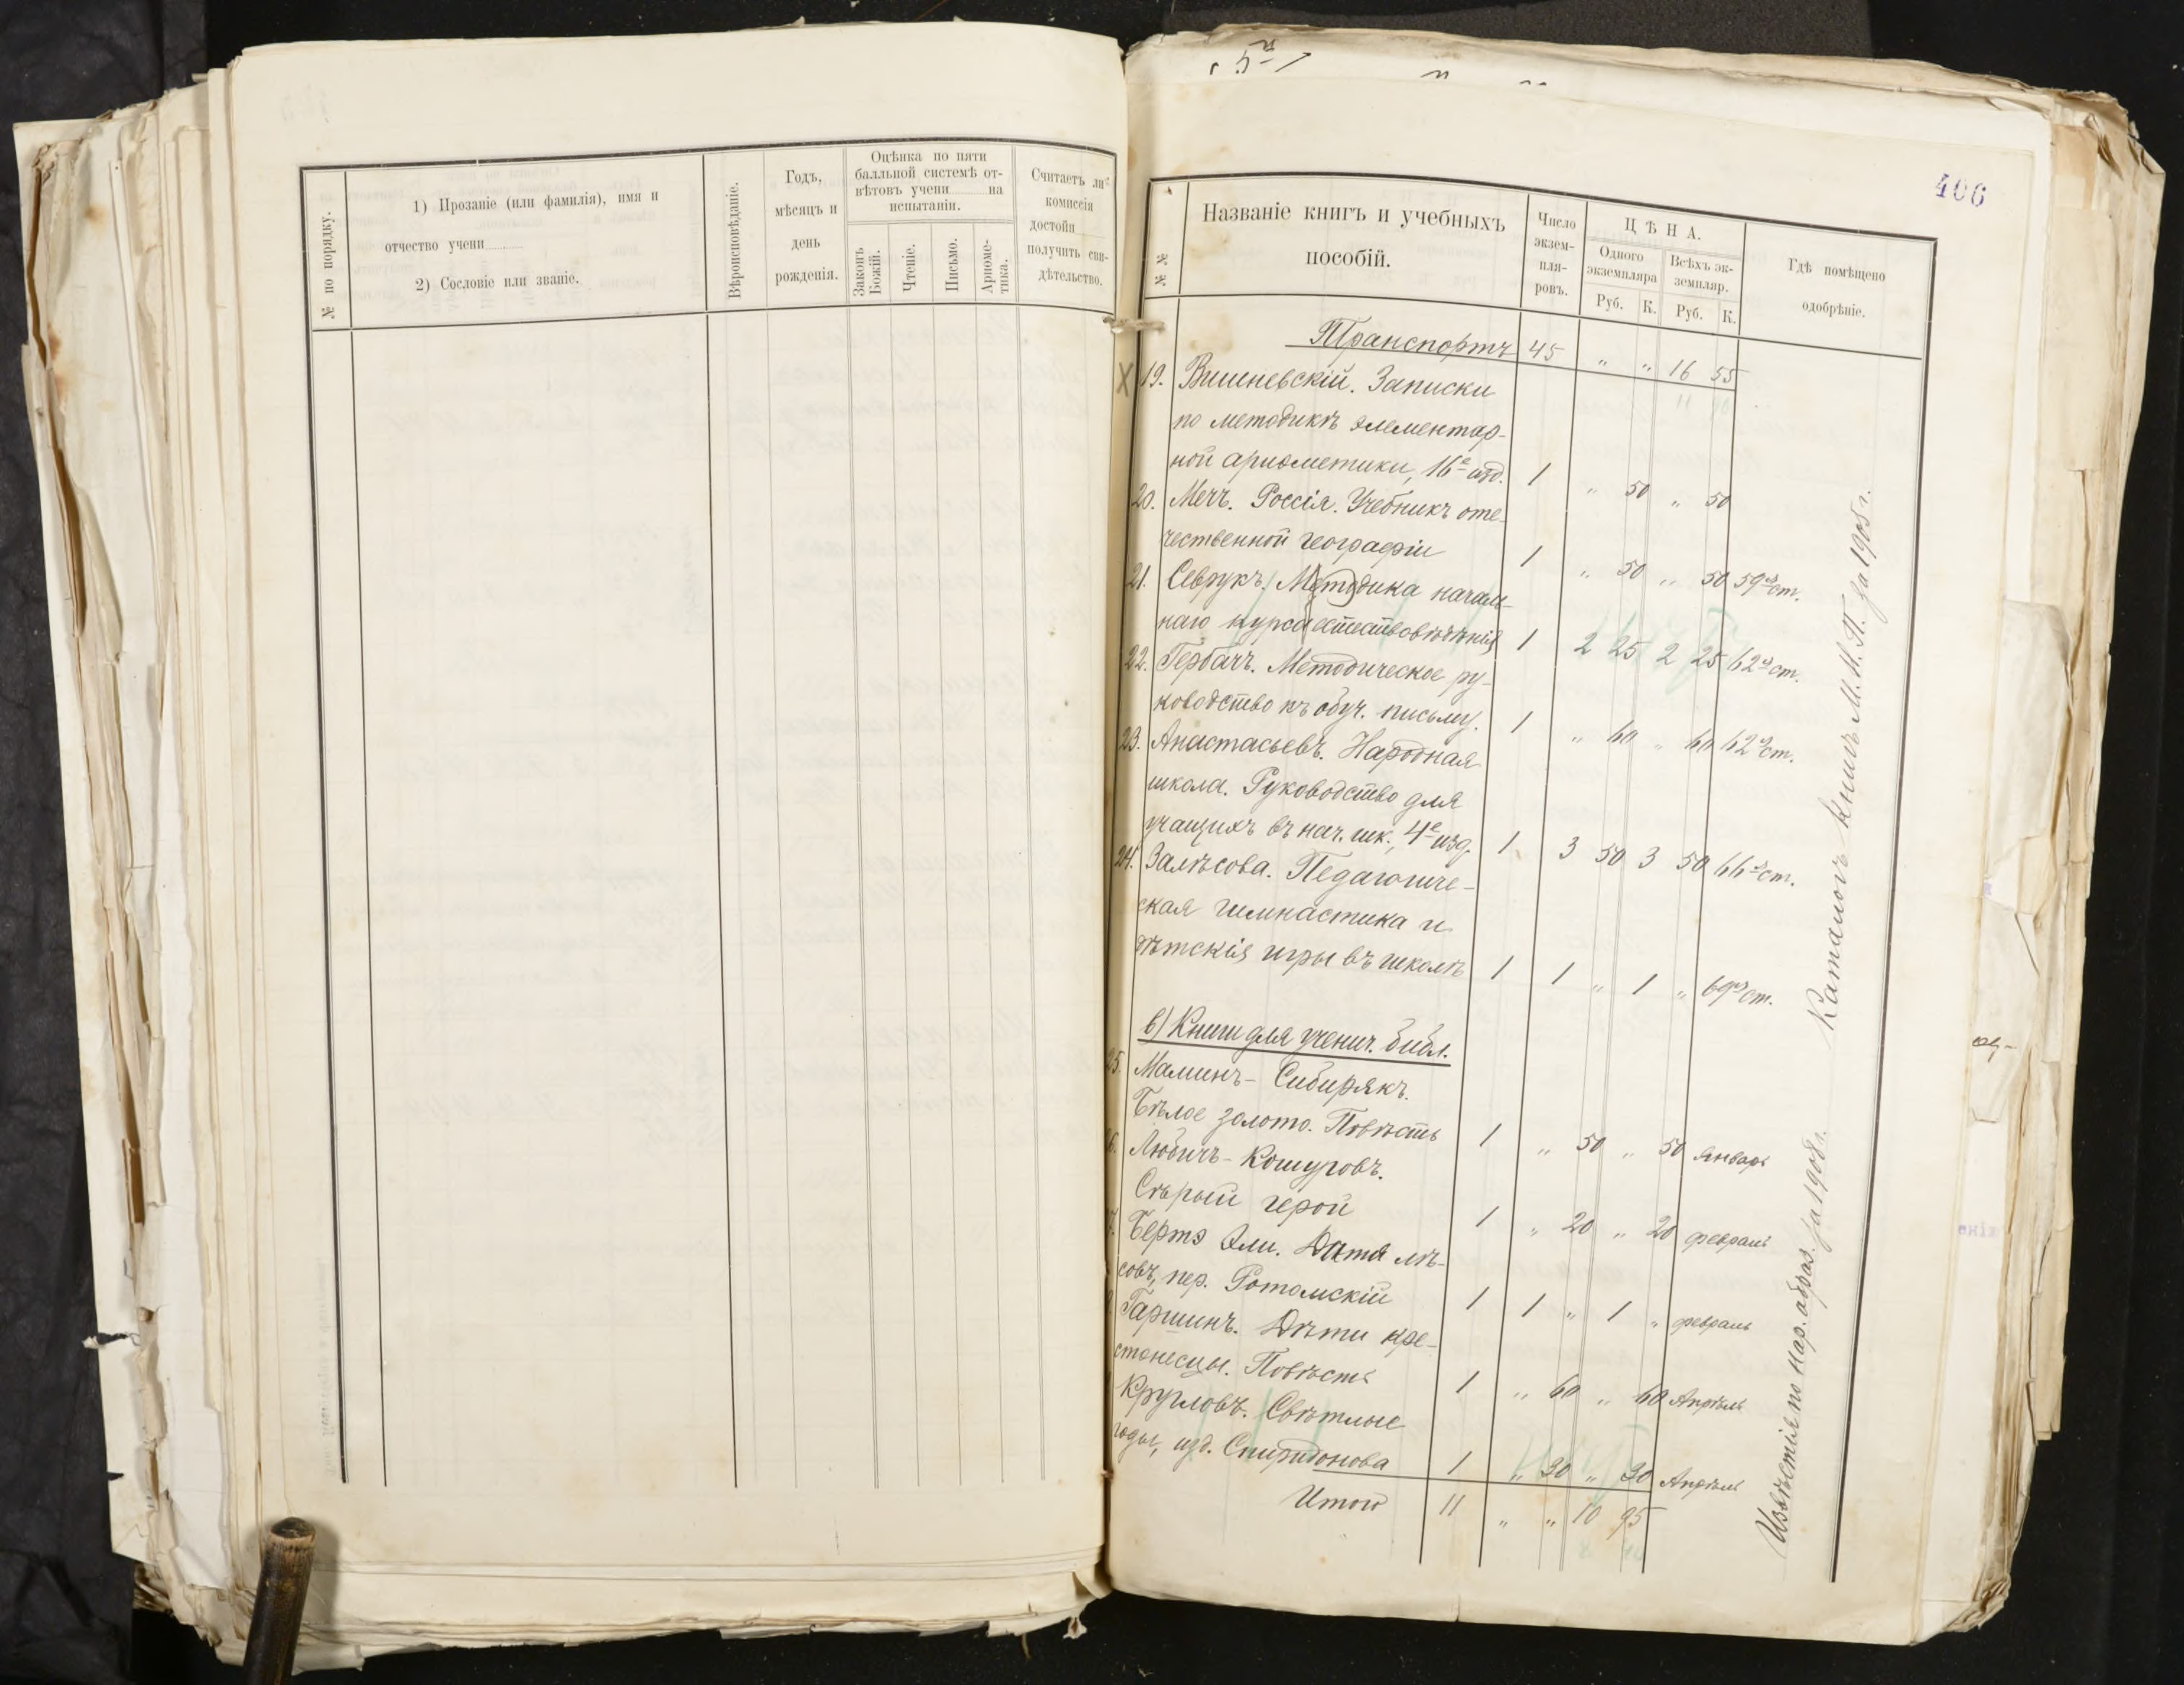 № по порядку.
1) Прозаніе (или фамилія), имя и
отчество учени
2) Сословіе или званіе.
Вѣроисповѣданіе.
Годъ,
мѣсяцъ и
день
рожденія.
Оцѣнка по пяти
балльной системѣ от-
вѣтовъ учени на
испытаніи.
Законъ
Божій.
Чтеніе.
Письмо.
Ариѳме-
тика.
Считаетъ ли
комиссія
достойн
получить сви-
дѣтельство.
406
№ №
Названіе книгъ и учебныхъ
пособій.
Число
экзем-
пля-
ровъ.
Ц Ѣ Н А.
Одного
экземпляра
Всѣхъ эк-
земпляр.
Руб. К. Руб. К.
Гдѣ помѣщено
одобрѣніе.
Транспортъ 45 " " 16 55
19. Вишневскій. Записки
по методикѣ элементар-
ной ариѳметики, 16е изд. 1 " 50 " 50
20. Мечъ. Россія. Учебникъ оте-
чественной географіи 1 " 50 " 50 59я ст.
21. Севрукъ. Методика началь-
наго курса естествовѣдѣнія 1 2 25 2 25 62я ст.
22. Гербачъ. Методическое ру-
ководство къ обуч. письму. 1 " 60 " 60 62я ст.
23. Анастасьевъ. Народная
школа. Руководство для
учащихъ въ нач. шк., 4е изд. 1 3 50 3 50 66я ст.
24. Залѣсова. Педагогиче-
ская гимнастика и
дѣтскія игры въ школѣ 1 1 " 1 " 69я ст.
в) Книги для ученич. библ.
25. Маминъ-Сибирякъ.
Бѣлое золото. Повѣсть 1 " 50 " 50 Январь
6. Любичъ-Кошуровъ.
Сѣрый герой 1 " 20 " 20 февраль
7. Бертэ Эли. Дитя лѣ-
совъ, пер. Ротомскій 1 1 " 1 " февраль
Гаршинъ. Дѣти кре-
стоносцы. Повѣсть 1 " 60 " 60 Апрѣль
Кругловъ. Свѣтлые
годы, изд. Спиридонова 1 " 30 " 30 Апрѣль
Итого 11 " " 10 95
Каталогъ книгъ М. Н. П. за 1905 г.
Извѣстія по нар. образ. за 1908 г.